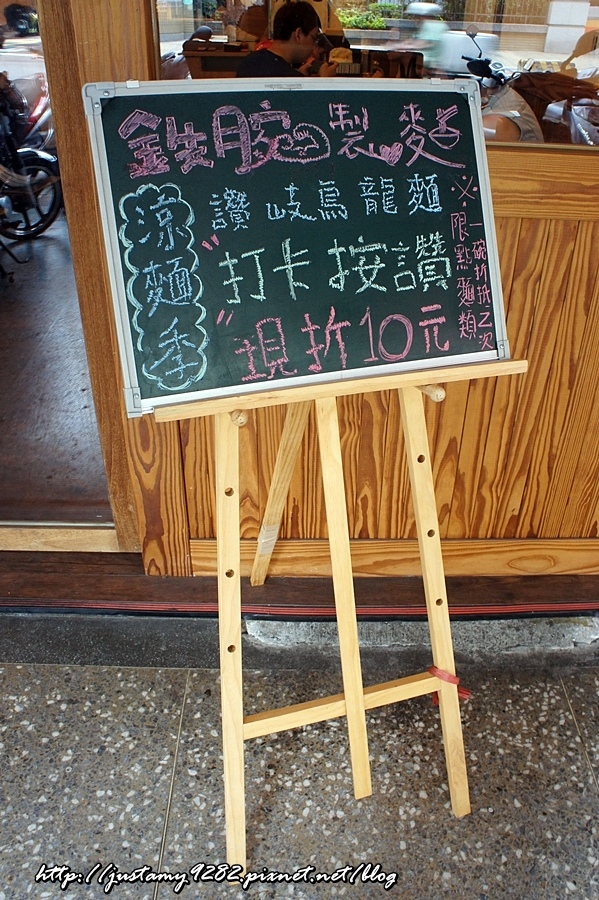 鉄腕製麵
讚岐烏龍麵
"打卡按讚"
現折10元
涼麵季
※一碗折抵乙次
限點麵類
http://justamy9282.pixnet.net/blog